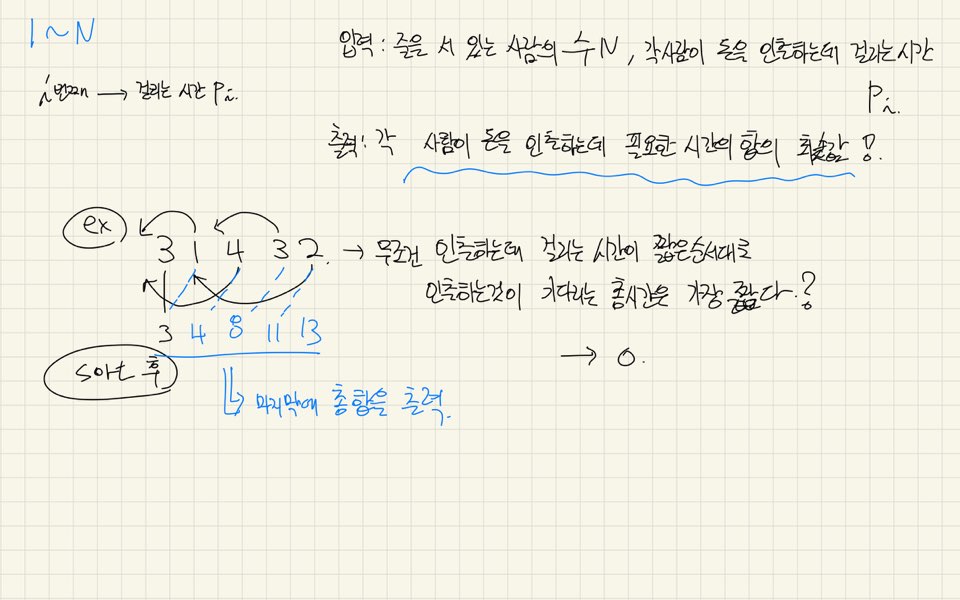 1~N
입력 : 줄을 서 있는 사람의 수 N , 각사람이 돈을 인출하는데 걸리는시간
Pi.
i번째 → 걸리는 시간 Pi.
출력 : 각 사람이 돈을 인출하는데 필요한 시간의 합의 최솟값 ?.
ex
3 1 4 3 2. → 무조건 인출하는데 걸리는 시간이 짧은순서대로
인출하는것이 기다리는 총시간은 가장 짧다.?
3 4 8 11 13
→ O.
sort 후
마지막에 총합을 출력.